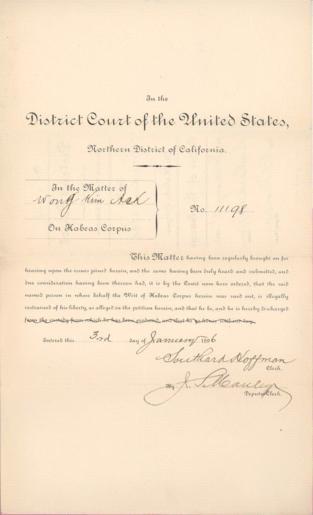 In the
District Court of the United States,
Northern District of California.
In the Matter of
Wong Kim Ark
On Habeas Corpus
No. 11198
This Matter having been regularly brought on for
hearing upon the issues joined herein, and the same having been duly heard and submitted, and
due consideration having been thereon had, it is by the Court now here ordered, that the said
named person in whose behalf the Writ of Habeas Corpus herein was sued out, is illegally
restrained of his liberty, as alleged in the petition herein, and that he be, and he is hereby discharged
from the custody from which he has been produced, and that he go hence without day.
Entered this 3rd day of January 1896
Southard Hoffman
Clerk.
By J. S. Manley
Deputy Clerk.